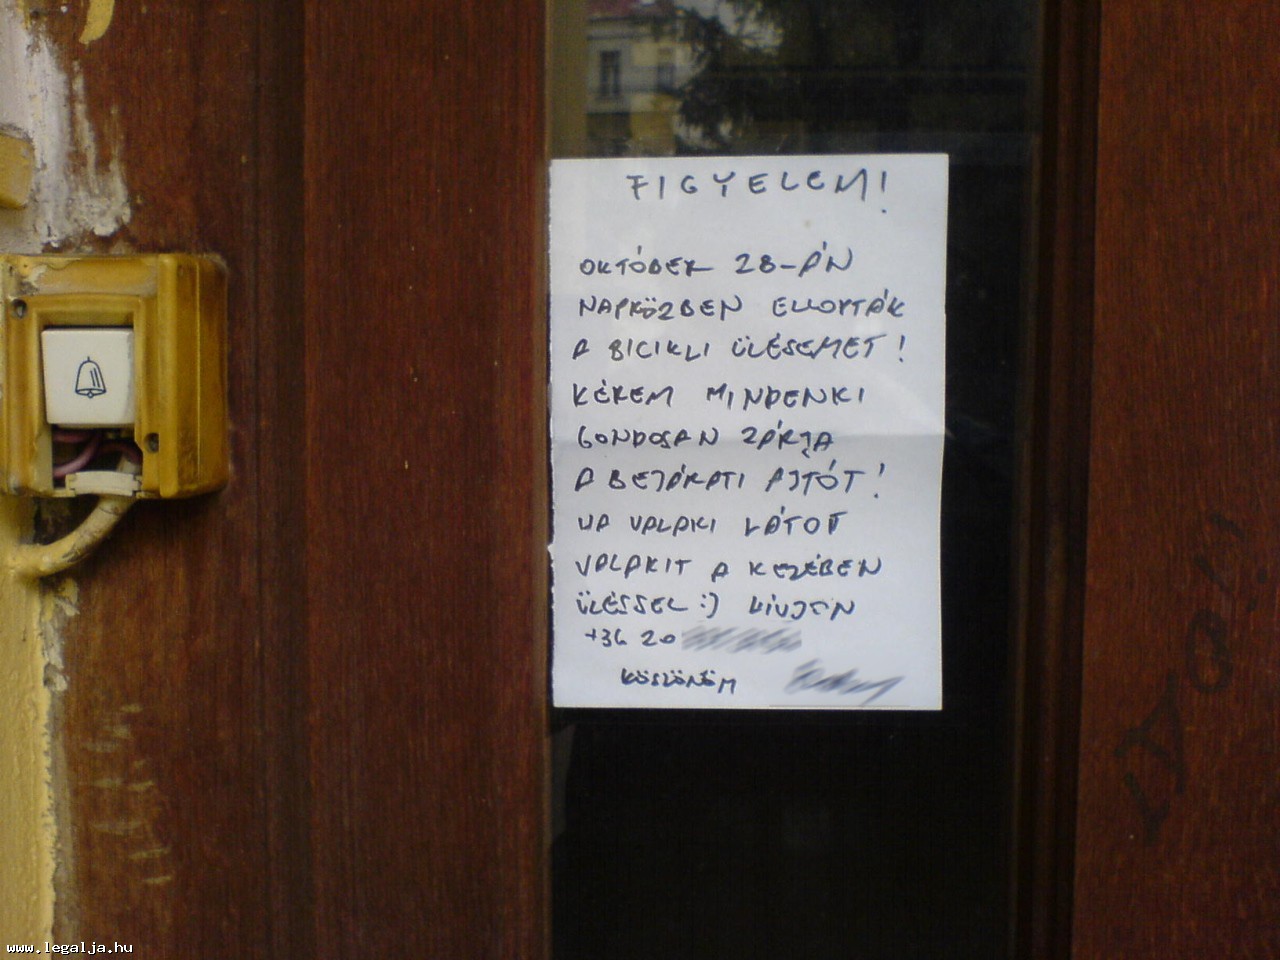 FIGYELEM!
OKTÓBER 28-ÁN
NAPKÖZBEN ELLOPTÁK
A BICIKLI ÜLÉSEMET!
KÉREM MINDENKI
GONDOSAN ZÁRJA
A BEJÁRATI AJTÓT!
HA VALAKI LÁTOTT
VALAKIT A KEZÉBEN
ÜLÉSSEL :) HÍVJON
+36 20
KÖSZÖNÖM
www.legalja.hu